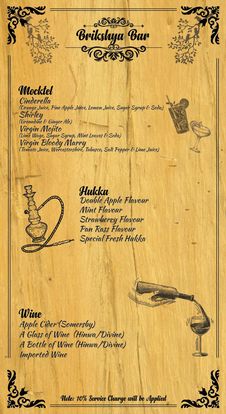 Brikshya Bar
Mocktel
Cinderella
(Orange Juice, Pine Apple Juice, Lemon Juice, Sugar Syrup & Soda)
Shirley
(Grenadine & Ginger Ale)
Virgin Mojito
(Lime Wage, Sugar Syrup, Mint Leaves & Soda)
Virgin Bloody Marry
(Tomato Juice, Worcestershire, Tabasco, Salt Pepper & Lime Juice)
Hukka
Double Apple Flavour
Mint Flavour
Strawberry Flavour
Pan Rass Flavour
Special Fresh Hukka
Wine
Apple Cider (Somersby)
A Glass of Wine (Hinwa/Divine)
A Bottle of Wine (Hinwa/Divine)
Imported Wine
Note: 10% Service Charge will be Applied